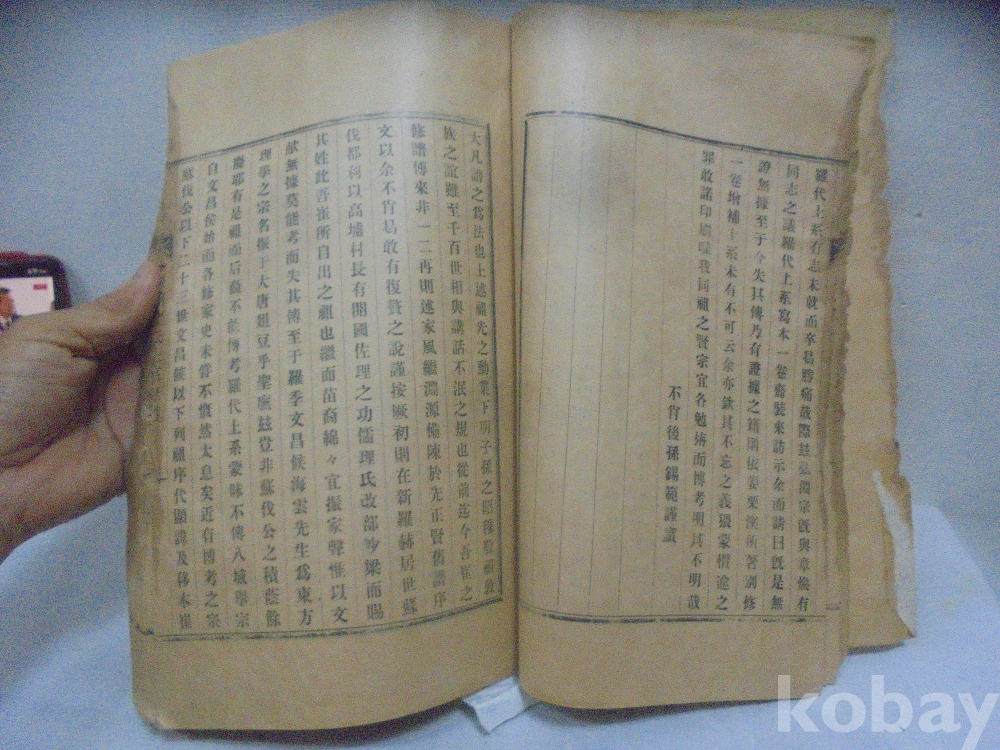 羅代上系有志未就而卒曷勝痛哉際玆弘淵宗旣與章煥有
同志之議羅代上系寫本一卷齎裝來訪示余而請曰旣是無
證無據至于今失其傳乃有證據之籍則依姜栗溪所著別修
一卷增補上系未有不可云余亦欽其不忘之義猥蒙僭逾之
罪敢諾印我同祖之賢宗宜各勉旃而博考明其不明哉
不肖後孫錫範謹識
大凡譜之爲法也上述祖先之勳業下明子孫之昭穆祖敦
族之誼雖至千百世相與講話不泯之規也從前迄今吾崔之
修譜傳來非一二再則述家風繼淵源備陳於先正賢舊譜序
文以余不肖曷敢有復贅之說謹按厥初則在新羅赫居世蘇
伐都利以高墟村長有開國佐理之功儒理氏改部沙梁而賜
其姓此吾崔所自出之祖也繼而苗裔綿々宜振家聲惟以文
献無據莫能考而失其傳至于羅季文昌候海雲先生爲東方
理學之宗名振于大唐俎豆乎聖廡玆豈非蘇伐公之積蔭餘
慶耶有是祖而后裔不能傳考羅代上系蒙昧不傳八域擧宗
自文昌侯始而各修家史未嘗不慨然太息矣近有博考之宗
蘇伐公以下二十三世文昌候以下列祖序代顯諱及移本崔
kobay